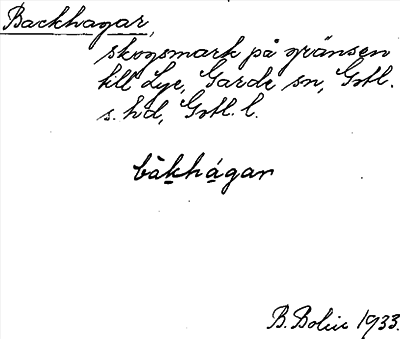 Backhagar,
skogsmark på gränsen
till Lye, Garde sn, Gotl.
s. hd, Gotl. l.
bàkhágar
B. Bolin 1933.